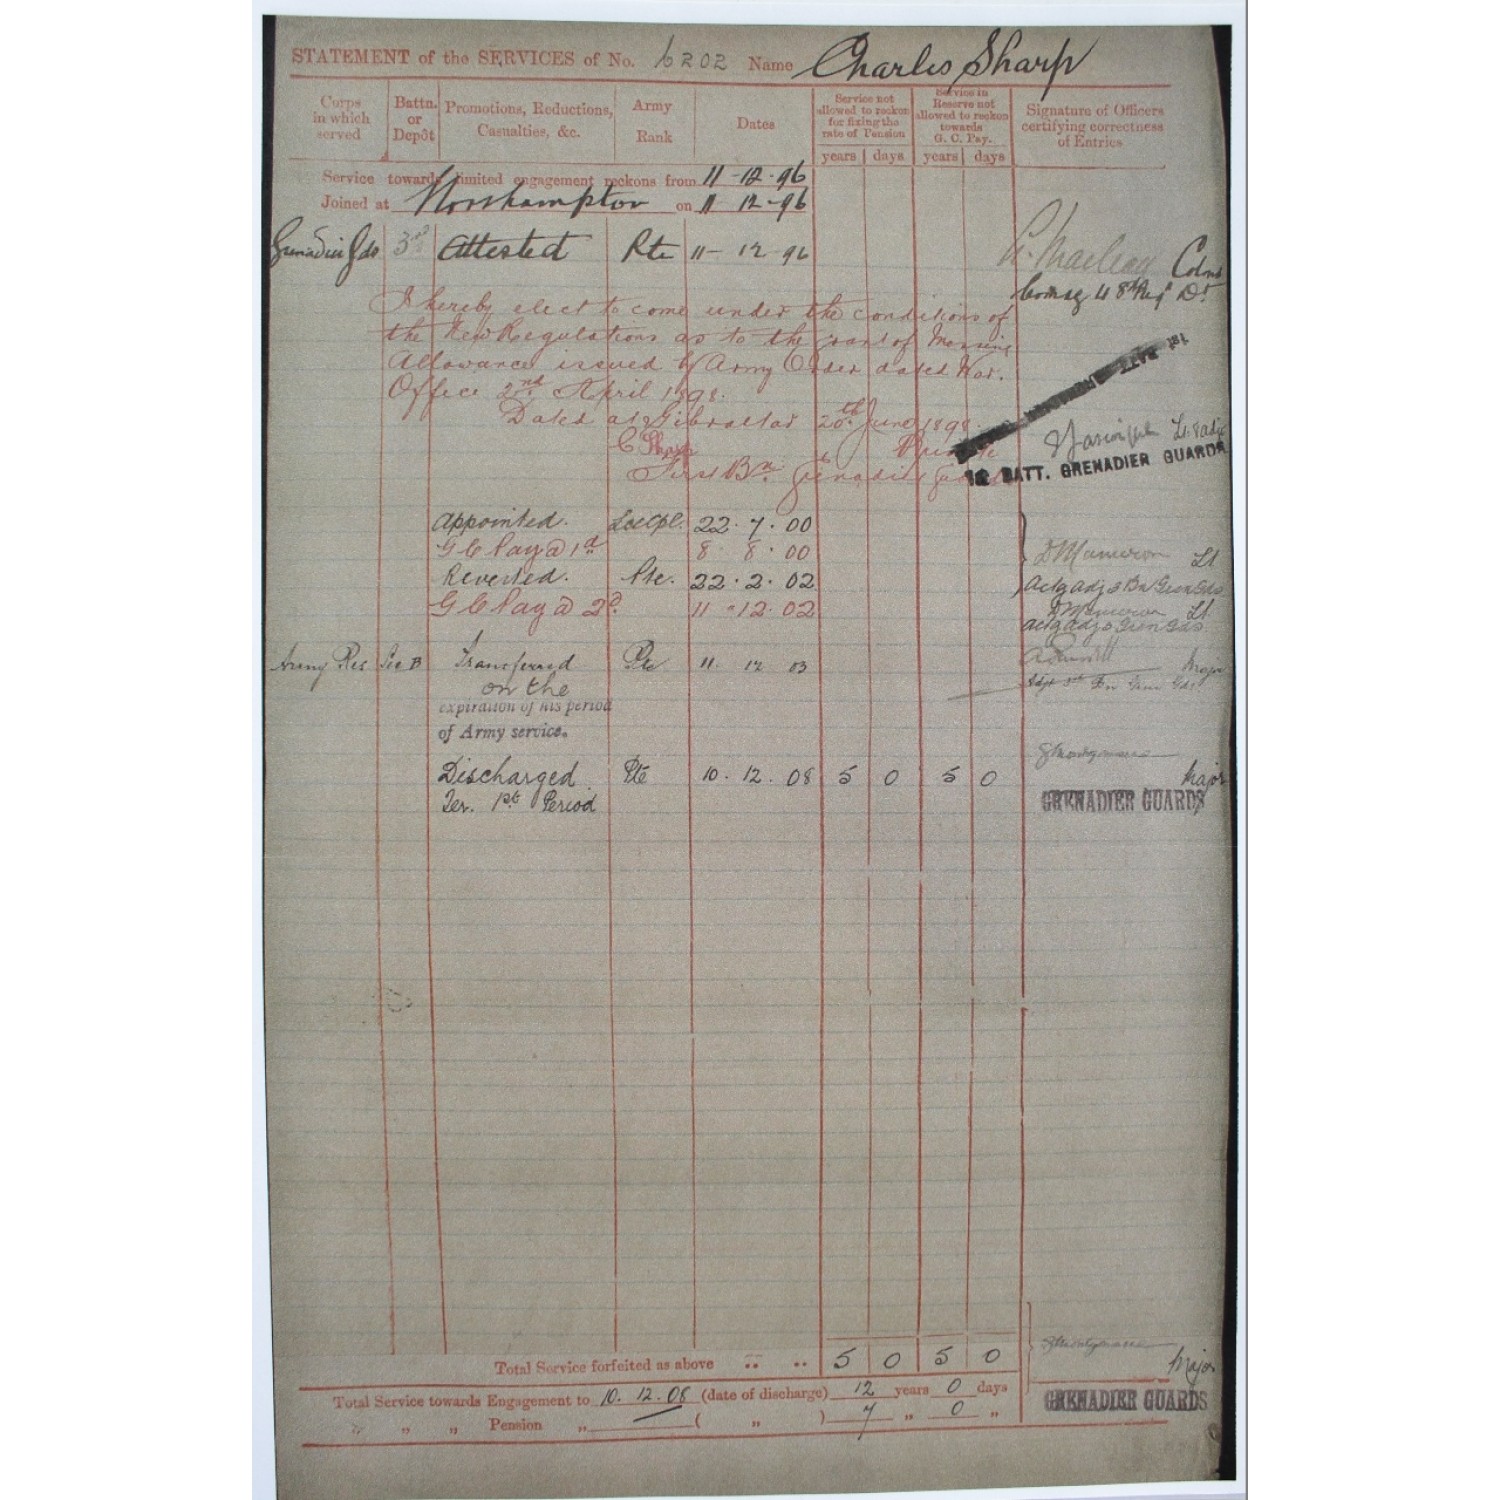 STATEMENT of the SERVICES of No. 6202 Name Charles Sharp
Corps in which served
Battn. or Depôt
Promotions, Reductions, Casualties, &c.
Army Rank
Dates
Service not allowed to reckon for fixing the rate of Pension
years days
Service in Reserve not allowed to reckon towards G. C. Pay.
years days
Signature of Officers certifying correctness of Entries
Service towards limited engagement reckons from 11-12-96
Joined at Northampton on 11-12-96
Grenadier Gds 3rd Attested Pte 11-12-96 Macleay Colnl
Comg 48th Regl Dt
I hereby elect to come under the conditions of
the New Regulations as to the grant of Messing
Allowance issued by Army Order dated War.
Office 2nd April 1898.
Dated at Gibraltar 20th June 1898.
C Sharp Private
First Bn Grenadier Guards
Lt & Adjt
BATT. GRENADIER GUARDS
Appointed. Lce Cpl. 22.7.00
G C Pay @ 1d 8.8.00 Lt
Reverted. Pte. 22.2.02 Actg Adj 3 Bn Gren Gds
G C Pay @ 2d. 11.12.02 Lt
Actg Adj 3 Gren Gds
Army Res Sec B Transferred Pte 11 12 03 Major
on the Adjt 3rd Bn Gren Gds
expiration of his period
of Army service.
Discharged Pte 10.12.08 5 0 5 0 Major
Ter. 1st Period GRENADIER GUARDS
Total Service forfeited as above .. .. 5 0 5 0 Major
Total Service towards Engagement to 10.12.08 (date of discharge) 12 years 0 days GRENADIER GUARDS
„ „ „ Pension „ ( „ ) 7 „ 0 „